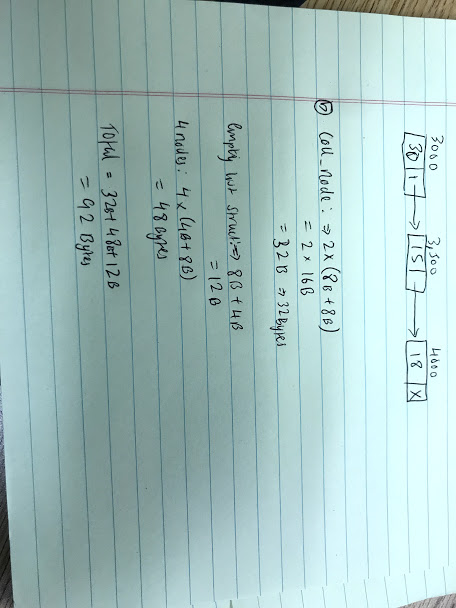 3000 3,500 4000
30 15 18 X
b) Coll_Node: ⇒ 2 × (8B + 8B)
= 2 × 16B
= 32B ⇒ 32 Bytes
empty list struct: ⇒ 8B + 4B
= 12B
4 nodes: 4 × (4B + 8B)
= 48 Bytes
Total = 32B + 48B + 12B
= 92 Bytes